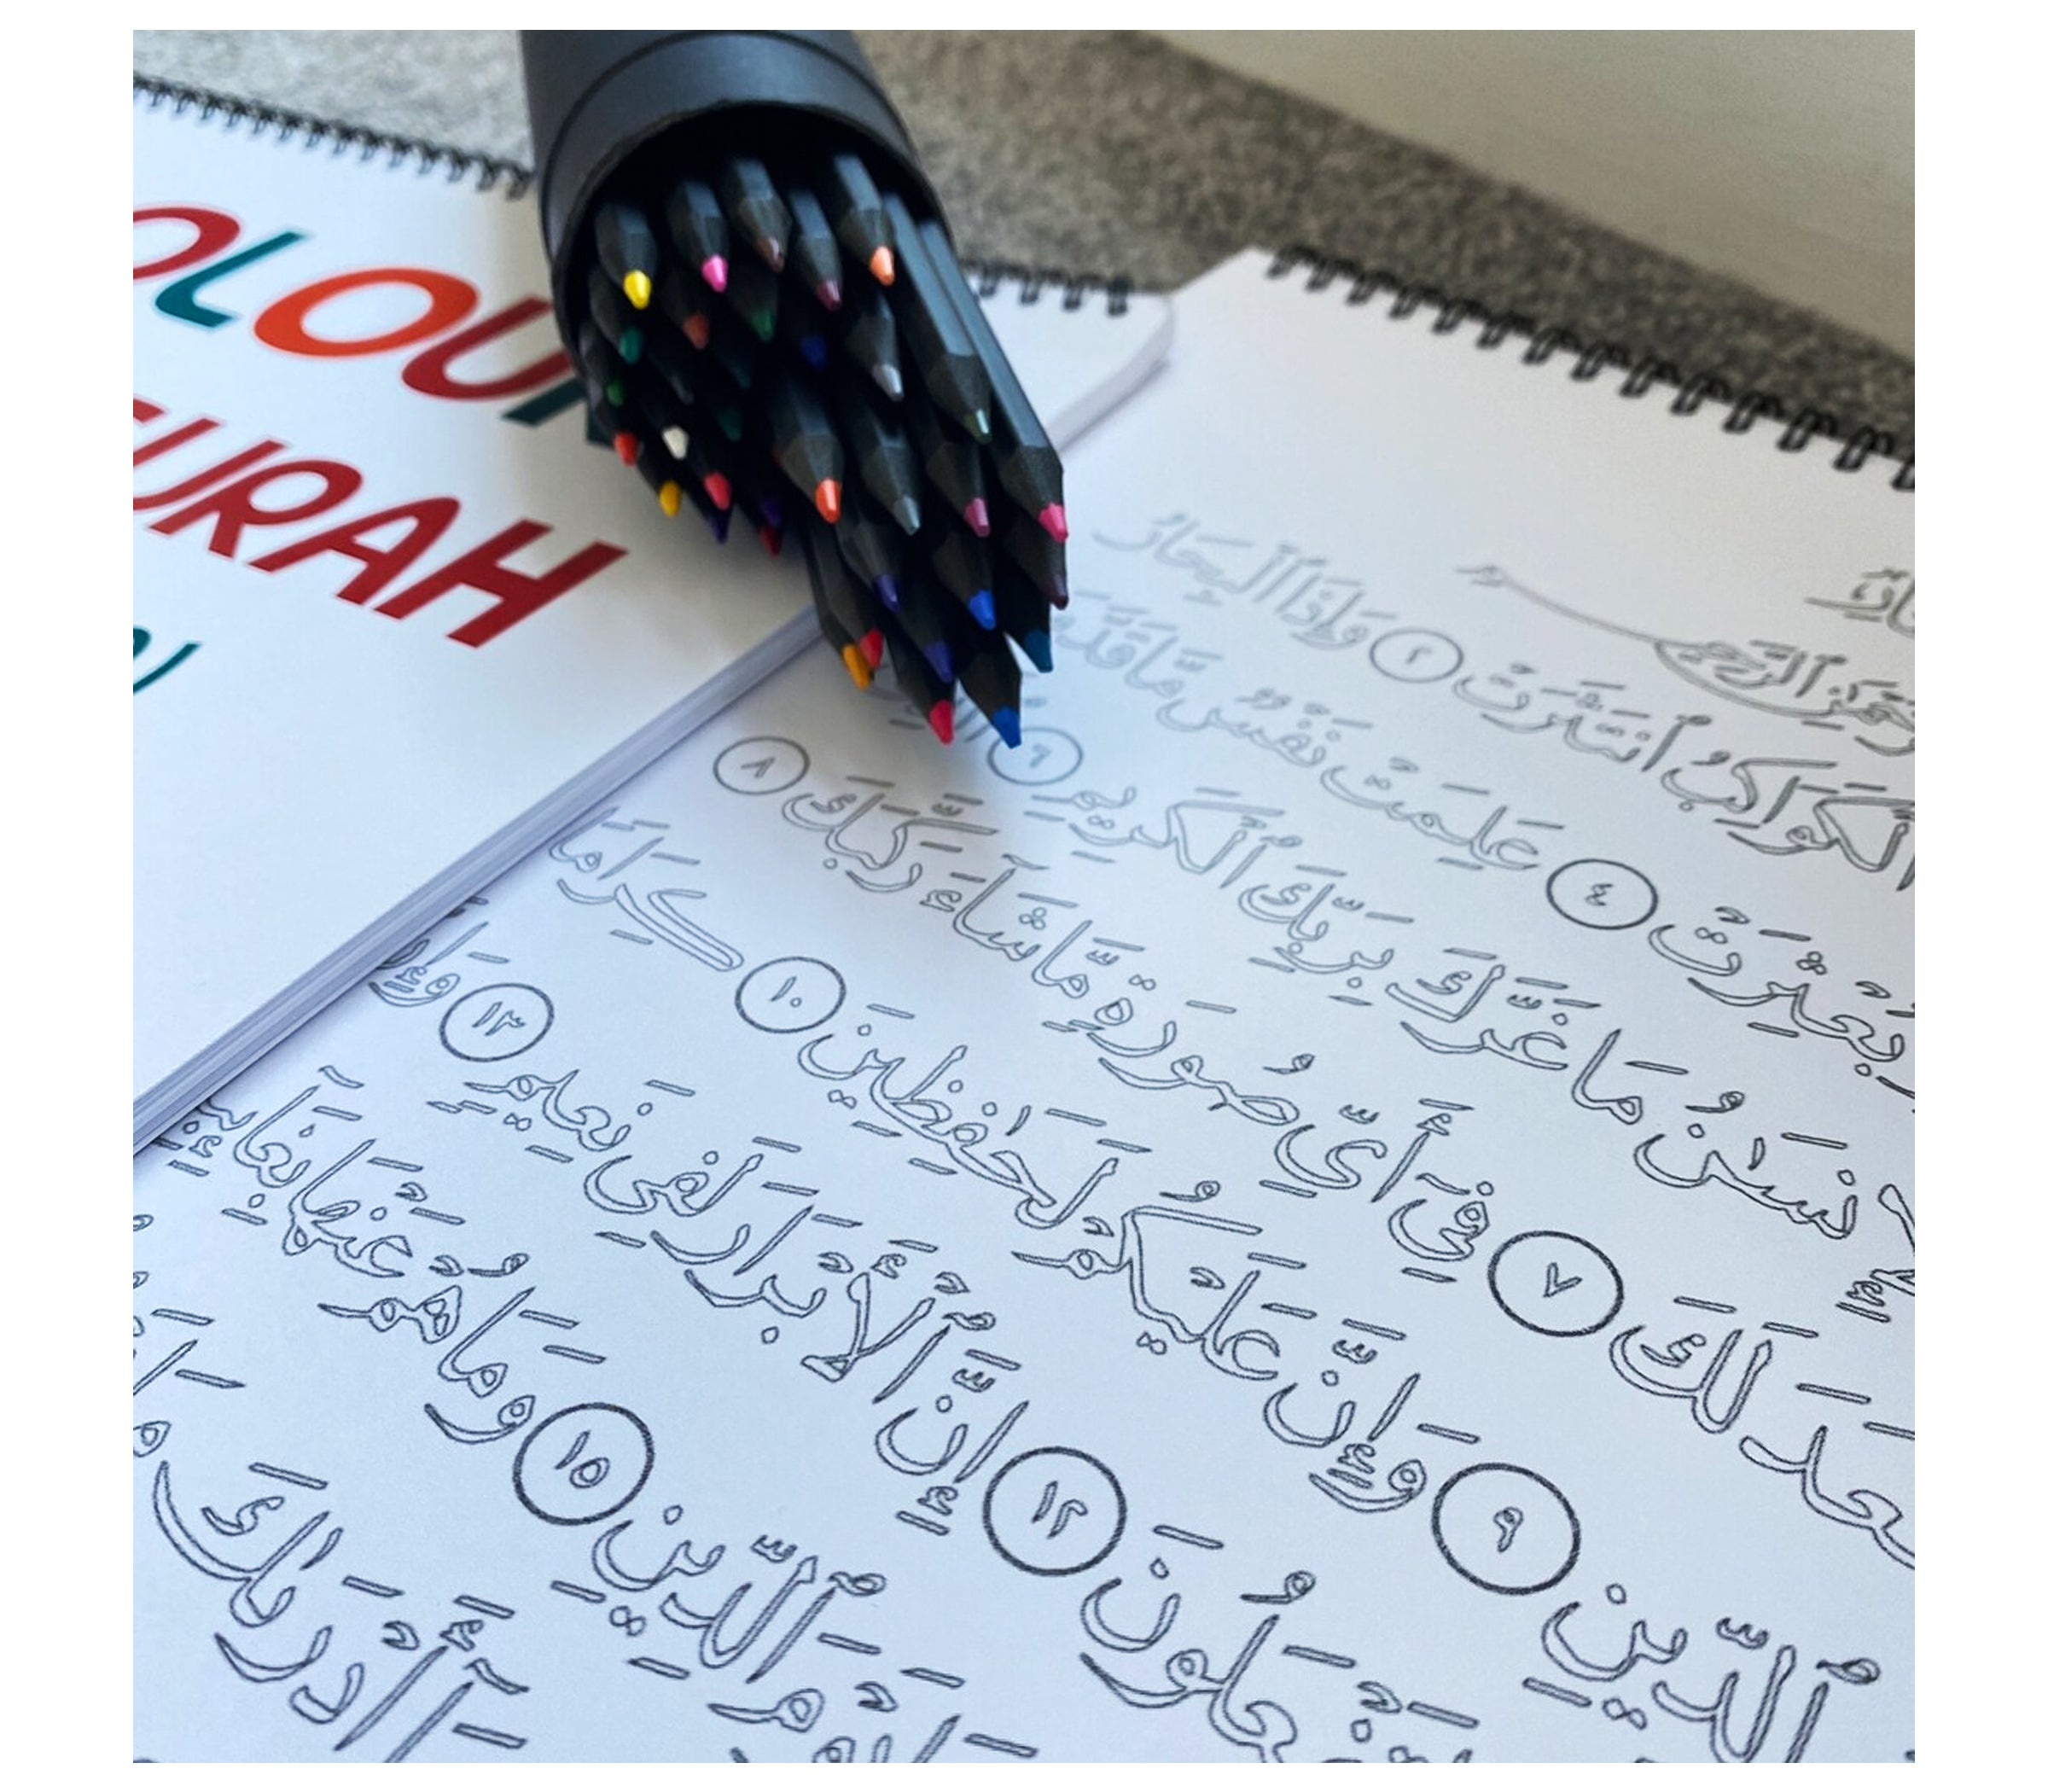 OLOUR
SURAH
ٱلرَّحِيمِ
ٱلْكَوَاكِبُ ٱنتَثَرَتْ ٢ وَإِذَا ٱلْبِحَارُ
بُعْثِرَتْ ٤ عَلِمَتْ نَفْسٌ مَّا قَدَّ
ٱلْإِنسَٰنُ مَا غَرَّكَ بِرَبِّكَ ٱلْكَرِيمِ ٦
عَدَلَكَ ٧ فِىٓ أَىِّ صُورَةٍ مَّا شَآءَ رَكَّبَكَ ٨
ٱلدِّينِ ٩ وَإِنَّ عَلَيْكُمْ لَحَٰفِظِينَ ١٠ كِرَامًا
تَفْعَلُونَ ١٢ إِنَّ ٱلْأَبْرَارَ لَفِى نَعِيمٍ ١٣ وَإِ
يَوْمَ ٱلدِّينِ ١٥ وَمَا هُمْ عَنْهَا بِغَآئِبِ
مَآ أَدْرَىٰكَ مَا